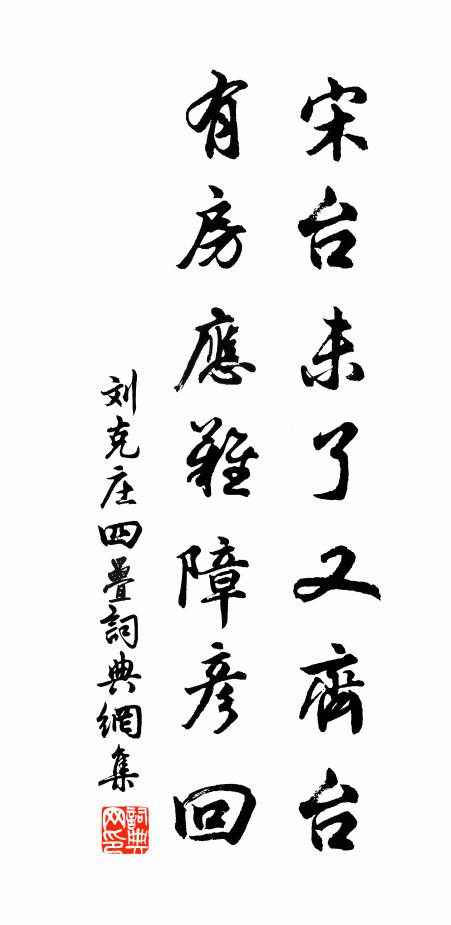 宋台未了又齊台
有房應難障彦回
刘克庄四疊詞典網集
詞典网印